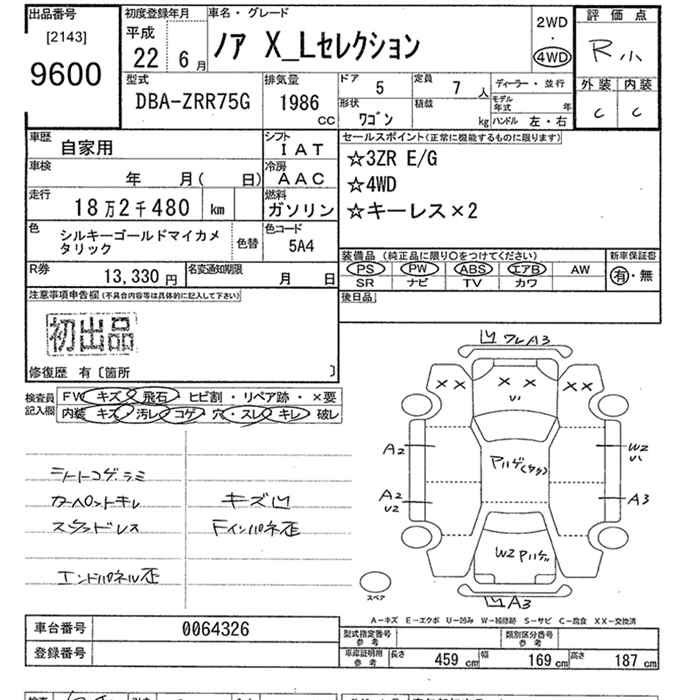 出品番号
[2143]
9600
初度登録年月
平成
22 6月
車名・グレード
ノア X_Lセレクション
2WD
・
4WD
評価点
R小
外装 内装
C C
型式
DBA-ZRR75G
排気量
1986
CC
ドア 5
形状
ワゴン
定員 7 人
積載 kg
ディーラー・並行
モデル年式 年
ハンドル 左・右
車歴
自家用
シフト
I A T
車検
年 月( 日)
冷房
A A C
走行
18万2千480 km
燃料
ガソリン
色
シルキーゴールドマイカメ
タリック
色替
色コード
5A4
R券
13,330 円
名変通知期限
月 日
セールスポイント(正常に機能するものに限ります)
☆3ZR E/G
☆4WD
☆キーレス×2
装備品 (純正品に限り○をつけてください)
PS PW ABS エアB AW
SR ナビ TV カワ
新車保証書
有・無
後日品
注意事項申告欄(不具合内容等は具体的に記入して下さい)
初出品
修復歴 有〔箇所 〕
検査員
記入欄
FW キズ 飛石・ヒビ割・リペア跡・×要
内装 キズ・汚レ・コゲ・穴・スレ・キレ・破レ
シートコゲ.ラミ
カーペットキレ
キズ凹
Fインパネ歪
エンドパネル歪
ワレA3
XX
X X
XX
A2
W2
A2
U2
A3
W2
A3
スペア
A-キズ E-エクボ U-凹み W-補修跡 S-サビ C-腐食 XX-交換済
車台番号
0064326
登録番号
型式指定番号
参考
類別区分番号
参考
車庫証明用
参考
長さ 459 cm
幅 169 cm
高さ 187 cm